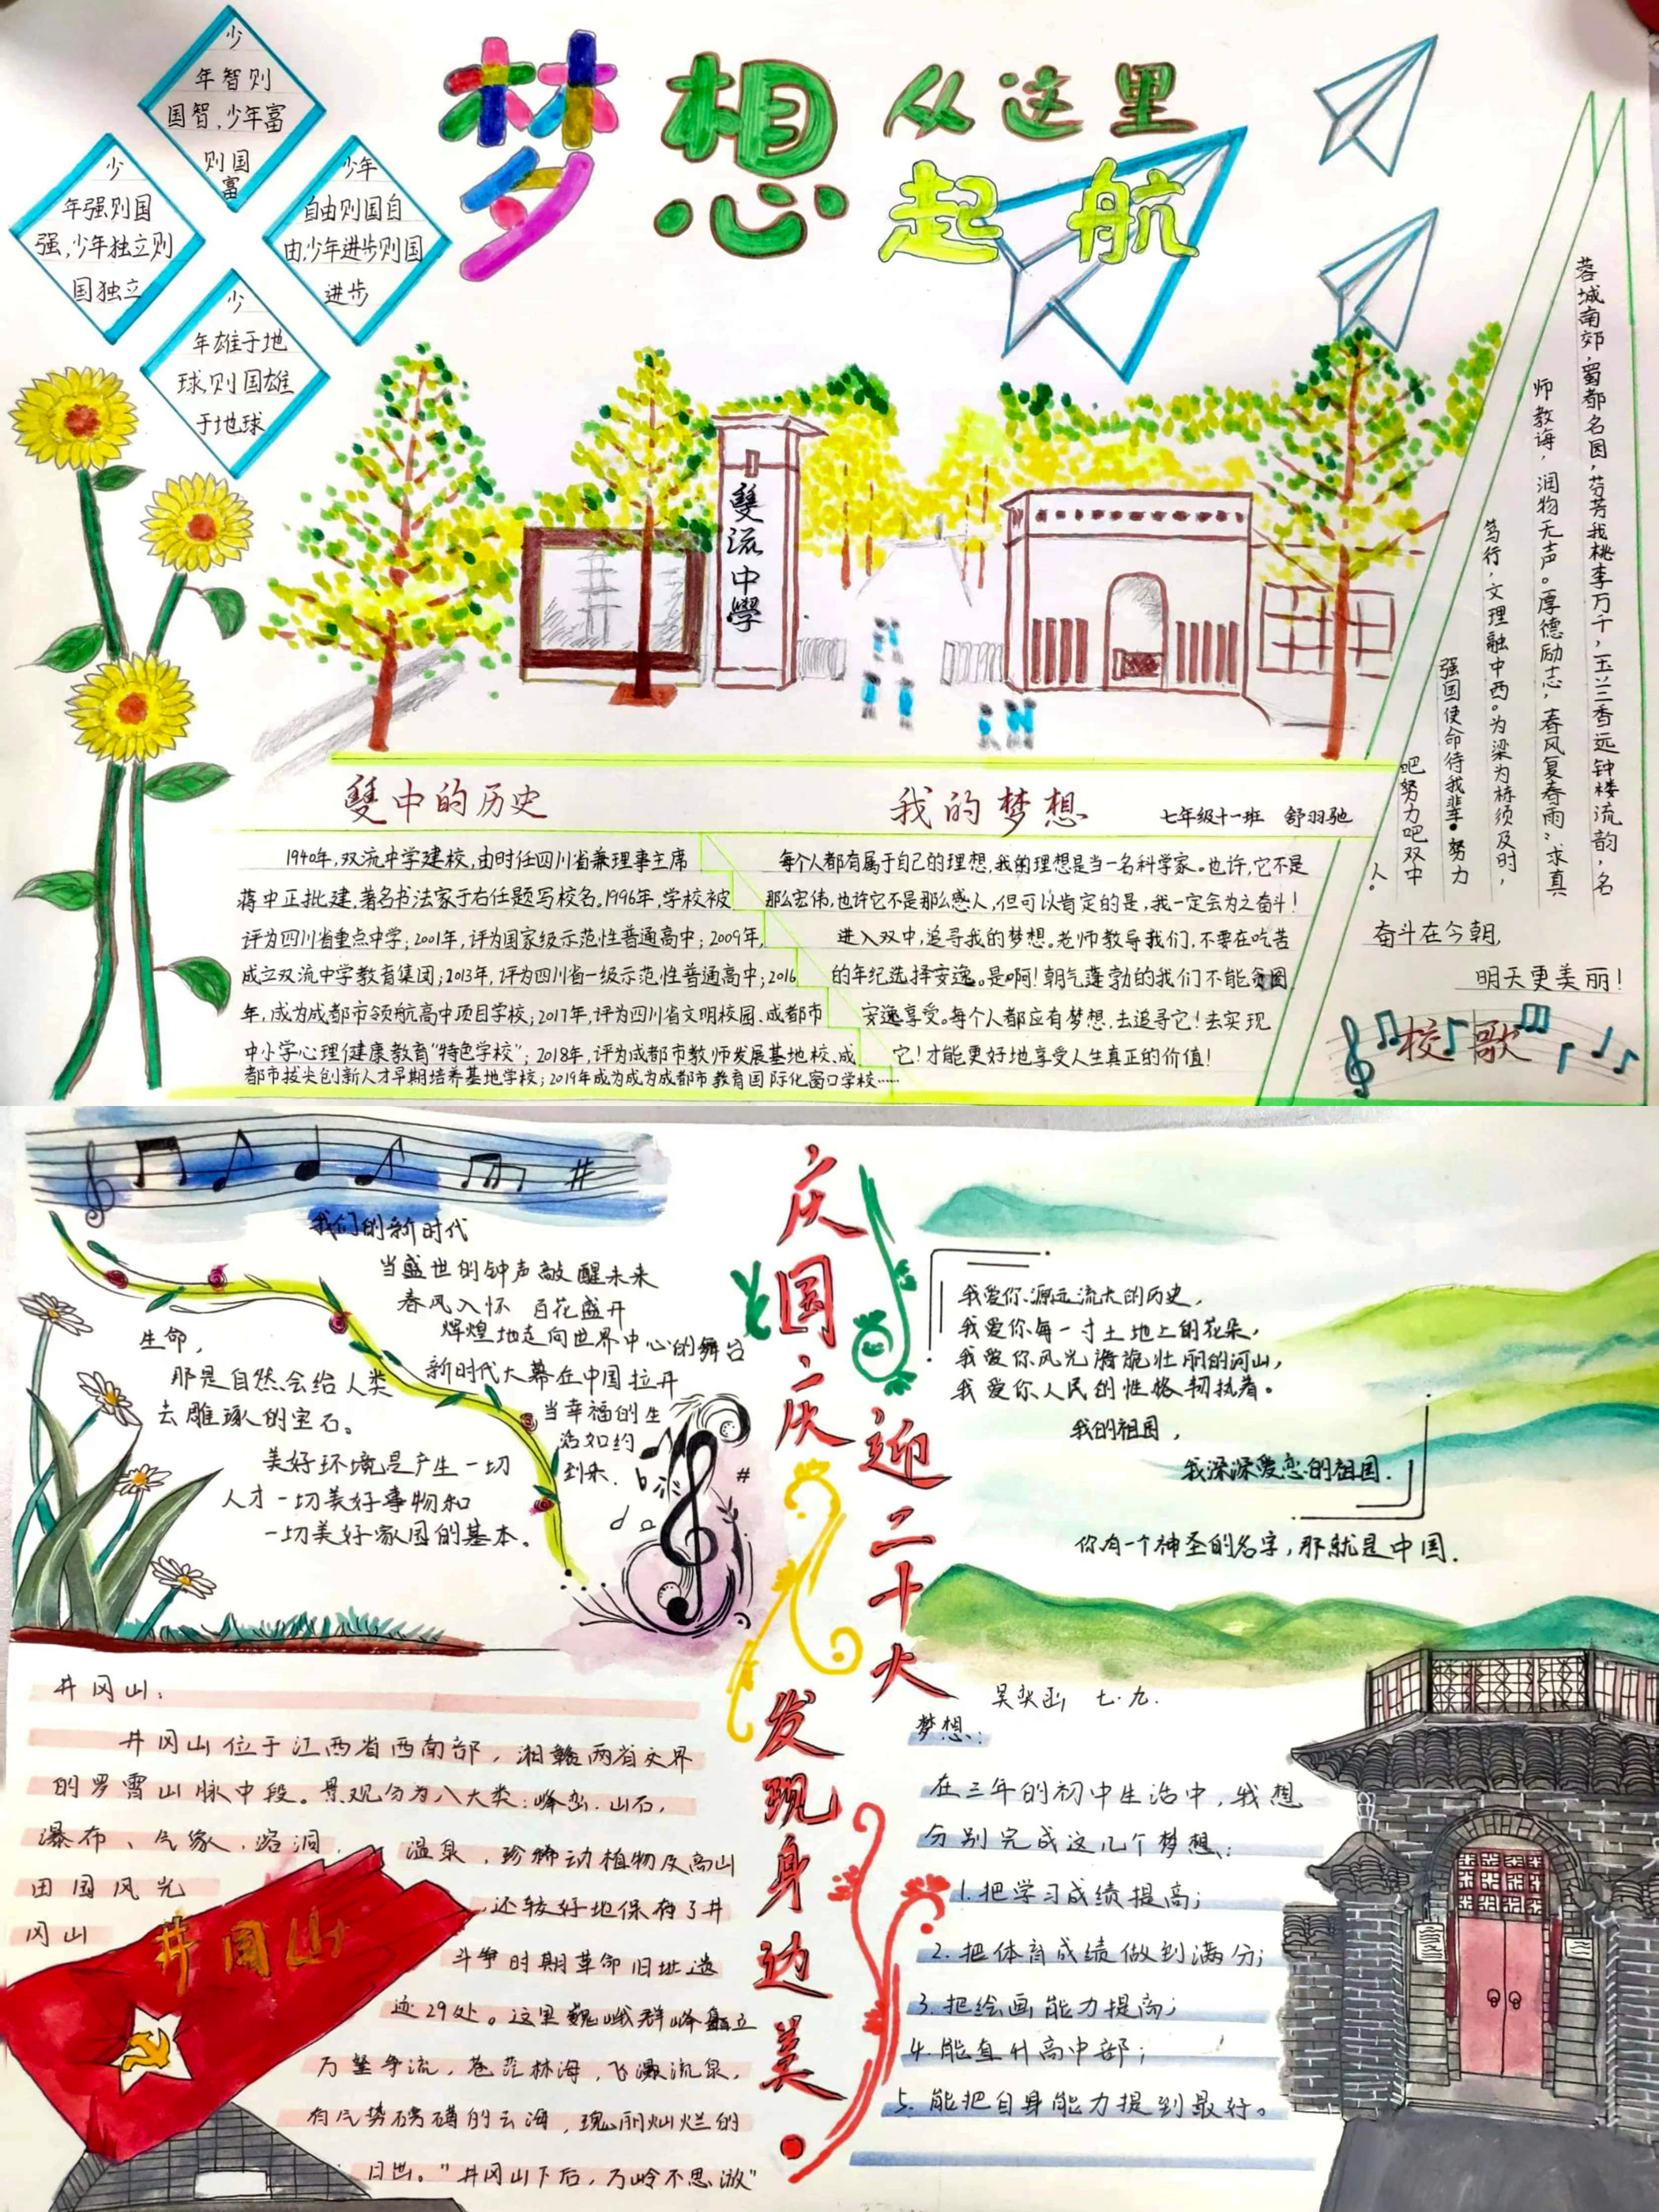 梦想从这里
起航
少
年智则
国智,少年富
则国
富
少
年强则国
强,少年独立则
国独立
少年
自由则国自
由,少年进步则国
进步
少
年雄于地
球则国雄
于地球
雙流中學
雙中的历史
1940年,双流中学建校,由时任四川省兼理事主席
蒋中正批建,著名书法家于右任题写校名。1996年,学校被
评为四川省重点中学;2001年,评为国家级示范性普通高中;2009年,
成立双流中学教育集团;2013年,评为四川省一级示范性普通高中;2016
年,成为成都市领航高中项目学校;2017年,评为四川省文明校园、成都市
中小学心理健康教育“特色学校”;2018年,评为成都市教师发展基地校、成
都市拔尖创新人才早期培养基地学校;2019年成为成为成都市教育国际化窗口学校……
我的梦想
七年级十一班 舒羽驰
每个人都有属于自己的理想,我的理想是当一名科学家。也许,它不是
那么宏伟,也许它不是那么感人,但可以肯定的是,我一定会为之奋斗!
进入双中,追寻我的梦想。老师教导我们,不要在吃苦
的年纪选择安逸。是啊!朝气蓬勃的我们不能贪图
安逸享受。每个人都应有梦想,去追寻它!去实现
它!才能更好地享受人生真正的价值!
蓉城南郊,蜀都名园,芬芳我桃李万千,玉兰香远钟楼流韵,名
师教诲,润物无声。厚德励志,春风复春雨;求真
笃行,文理融中西。为梁为栋须及时,
强国使命待我辈。努力
吧努力吧双中
人。
奋斗在今朝,
明天更美丽!
校歌
庆国庆
迎二十大
发现身边美
我们的新时代
当盛世的钟声敲醒未来
春风入怀 百花盛开
辉煌地走向世界中心的舞台
新时代大幕在中国拉开
当幸福的生
活如约
到来.
生命,
那是自然会给人类
去雕琢的宝石。
美好环境是产生一切
人才一切美好事物和
一切美好家园的基本。
我爱你源远流长的历史,
我爱你每一寸土地上的花朵,
我爱你风光旖旎壮丽的河山,
我爱你人民的性格韧执着。
我的祖国,
我深深爱恋的祖国.
你有一个神圣的名字,那就是中国.
井冈山:
井冈山位于江西省西南部,湘赣两省交界
的罗霄山脉中段。景观分为八大类:峰峦.山石,
瀑布、气象.溶洞, 温泉,珍稀动植物及高山
田园风光
还较好地保存了井
冈山
斗争时期革命旧址遗
迹29处。这里巍峨群峰矗立
万壑争流,苍茫林海,飞瀑流泉,
有气势磅礴的云海,瑰丽灿烂的
日出。“井冈山下后,万岭不思游”
井冈山
七.九.
梦想:
在三年的初中生活中,我想
分别完成这几个梦想:
1.把学习成绩提高;
2.把体育成绩做到满分;
3.把绘画能力提高;
4.能直升高中部;
5.能把自身能力提到最好。